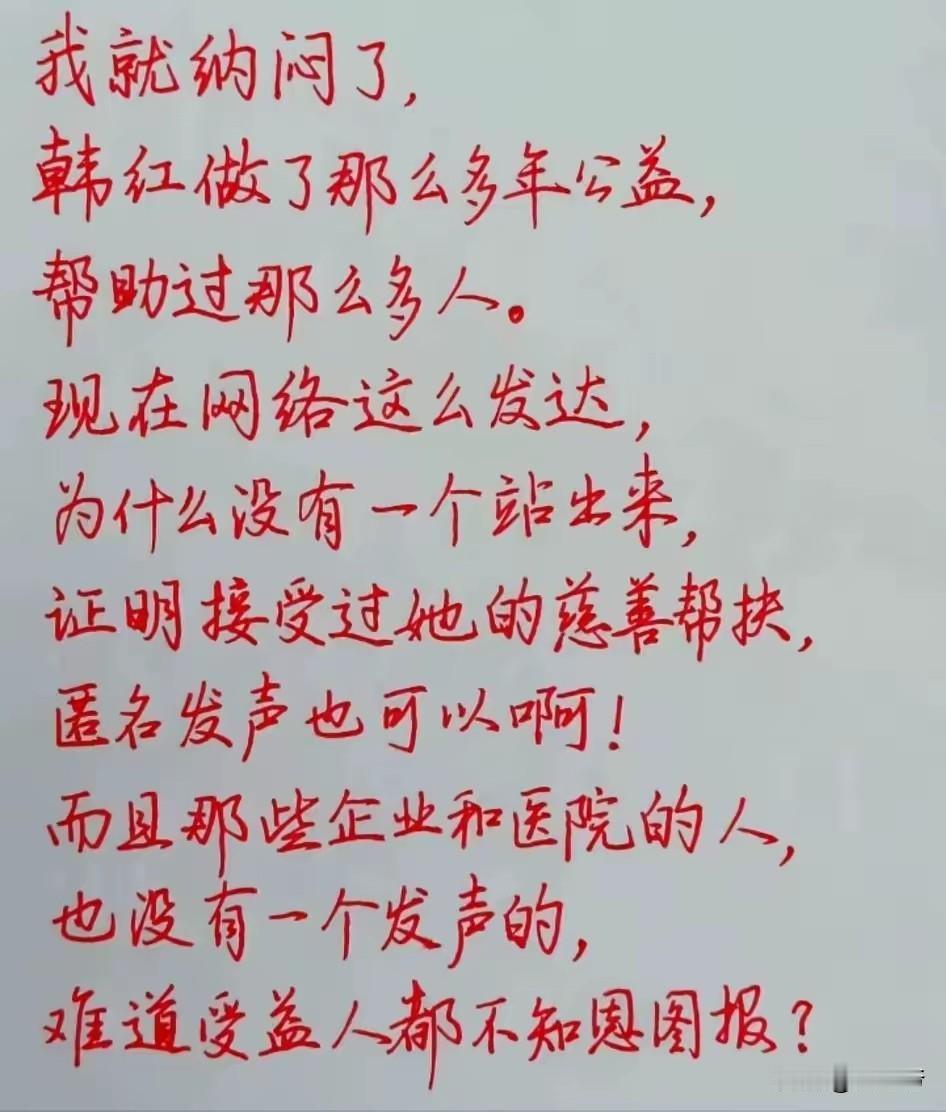 我就纳闷了,
韩红做了那么多年公益,
帮助过那么多人。
现在网络这么发达,
为什么没有一个站出来,
证明接受过她的慈善帮扶,
匿名发声也可以啊!
而且那些企业和医院的人,
也没有一个发声的,
难道受益人都不知恩图报?